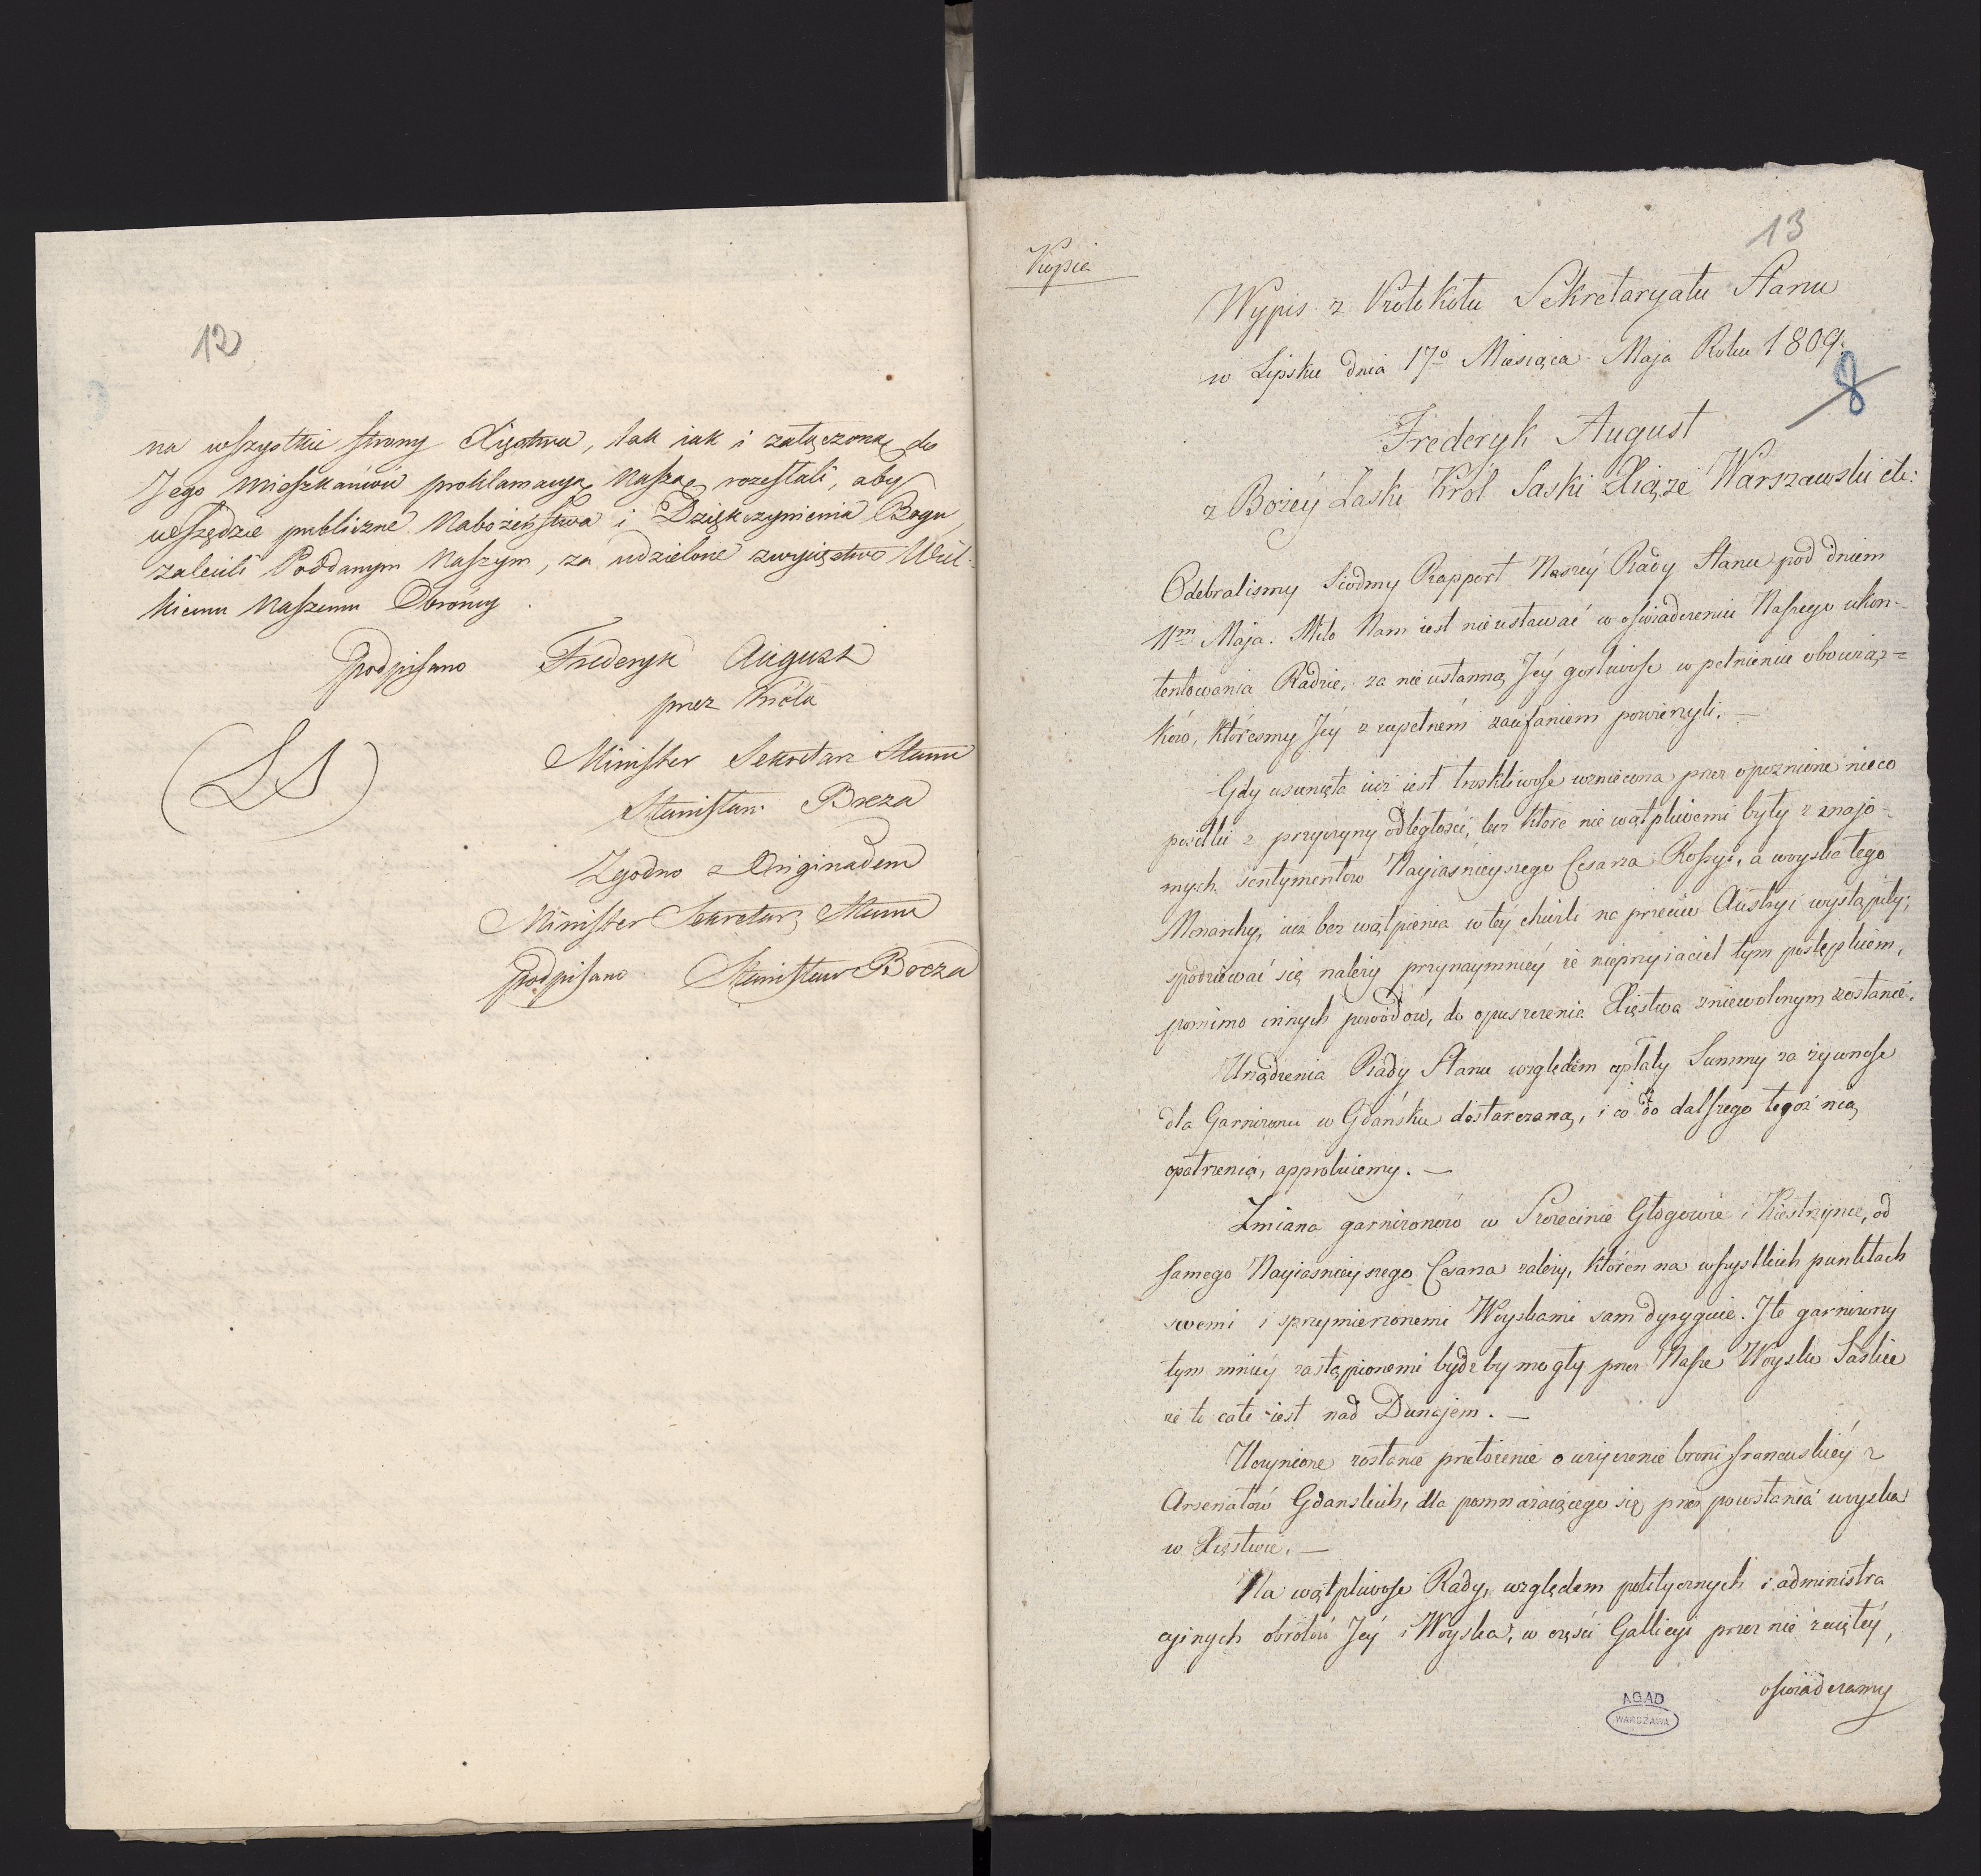 12
na wszystkie strony Xięstwa, tak iak i załączoną do
Jego Mieszkańców proklamacyą Naszą rozesłali, aby
wszędzie publiczne Nabożeństwa i Dziękczynienia Bogu
zalecili Poddanym Naszym, za udzielone zwycięstwo Wiel-
kiemu Naszemu Obrońcy.
Podpisano Frederyk August
przez Króla
(LS)
Minister Sekretarz Stanu
Stanisław Breza
Zgodno z Originałem
Minister Sekretarz Stanu
Podpisano Stanisław Breza
13
Kopia
Wypis z Protokołu Sekretaryatu Stanu
w Lipsku dnia 17º Miesiąca Maja Roku 1809.
8
Frederyk August
z Bożéy Łaski Król Saski Xiąże Warszawski etc:
Odebralismy Siodmy Rapport Naszéy Rady Stanu pod dniem
11m Maja. Miło Nam iest nieustawać w oświadczeniu Naszego ukon-
tentowania Radzie, za nieustanną Jéy gorliwość w pełnieniu obowiąz=
ków, któresmy Jéy z zupełném zaufaniem powierzyli. —
Gdy usunięta iuż iest troskliwość wzniecona przez opoznione nieco
posiłki z przyczyny odległości, lecz które niewątpliwemi były z znajo-
mych sentymentów Nayiaśnieyszego Cesarza Rossyi, a woyska tego
Monarchy, iuż bez wątpienia w téy chwili na przeciw Austryi wystąpiły;
spodziewać się należy przynaymniéy że nieprzyiaciel tym postępkiem,
pomimo innych powodów, do opuszczenia Xięstwa zniewolonym zostanie.
Urządzenia Rady Stanu względem opłaty Summy za żywność
dla Garnizonu w Gdańsku dostarczaną, i co do dalszego tegoż nią
opatrzenia, approbuiemy. —
Zmiana garnizonów w Szczecinie Głogowie i Kiestrzynie, od
samego Nayiasnieyszego Cesarza zależy, któren na wszystkich punktach
swemi i sprzymierzonemi Woyskami sam dyryguie. Jte garnizony
tym mniéy zastąpionemi bydź by mogły przez Nasze Woysko Saskie
że to całe iest nad Dunajem. —
Uczynione zostanie przełożenie o użyczenie broni francuskiéy z
Arsenałów Gdańskich, dla pomnażaiącego się przez powstania woyska
w Xięstwie. —
Na wątpliwość Rady, względem politycznych i administra
cyinych obrotów Jéy i Woyska, w części Gallicyi przez nie zaiętéy,
oświadczamy
AGAD
WARSZAWA